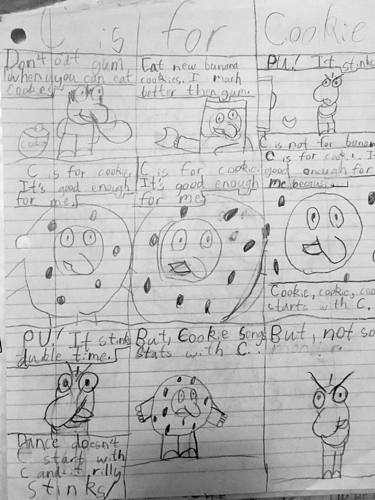 C is for Cookie
Don't eat gum
when you can eat
cookies.
Cookies
Eat new banana
cookies. I much
better then gum.
PU! It stinks
C is not for banan
C is for cookie. I
good enough for
me because
C is for cookie.
It's good enough
for me!
C is for cookie.
It's good enough
for me!
Cookie, cookie, coo
starts with C.
PU! It stinks
duble time.
Dance doesn't
start with
C and it rilly
stinks!
But, Cookie Song
stats with C.
But, not so